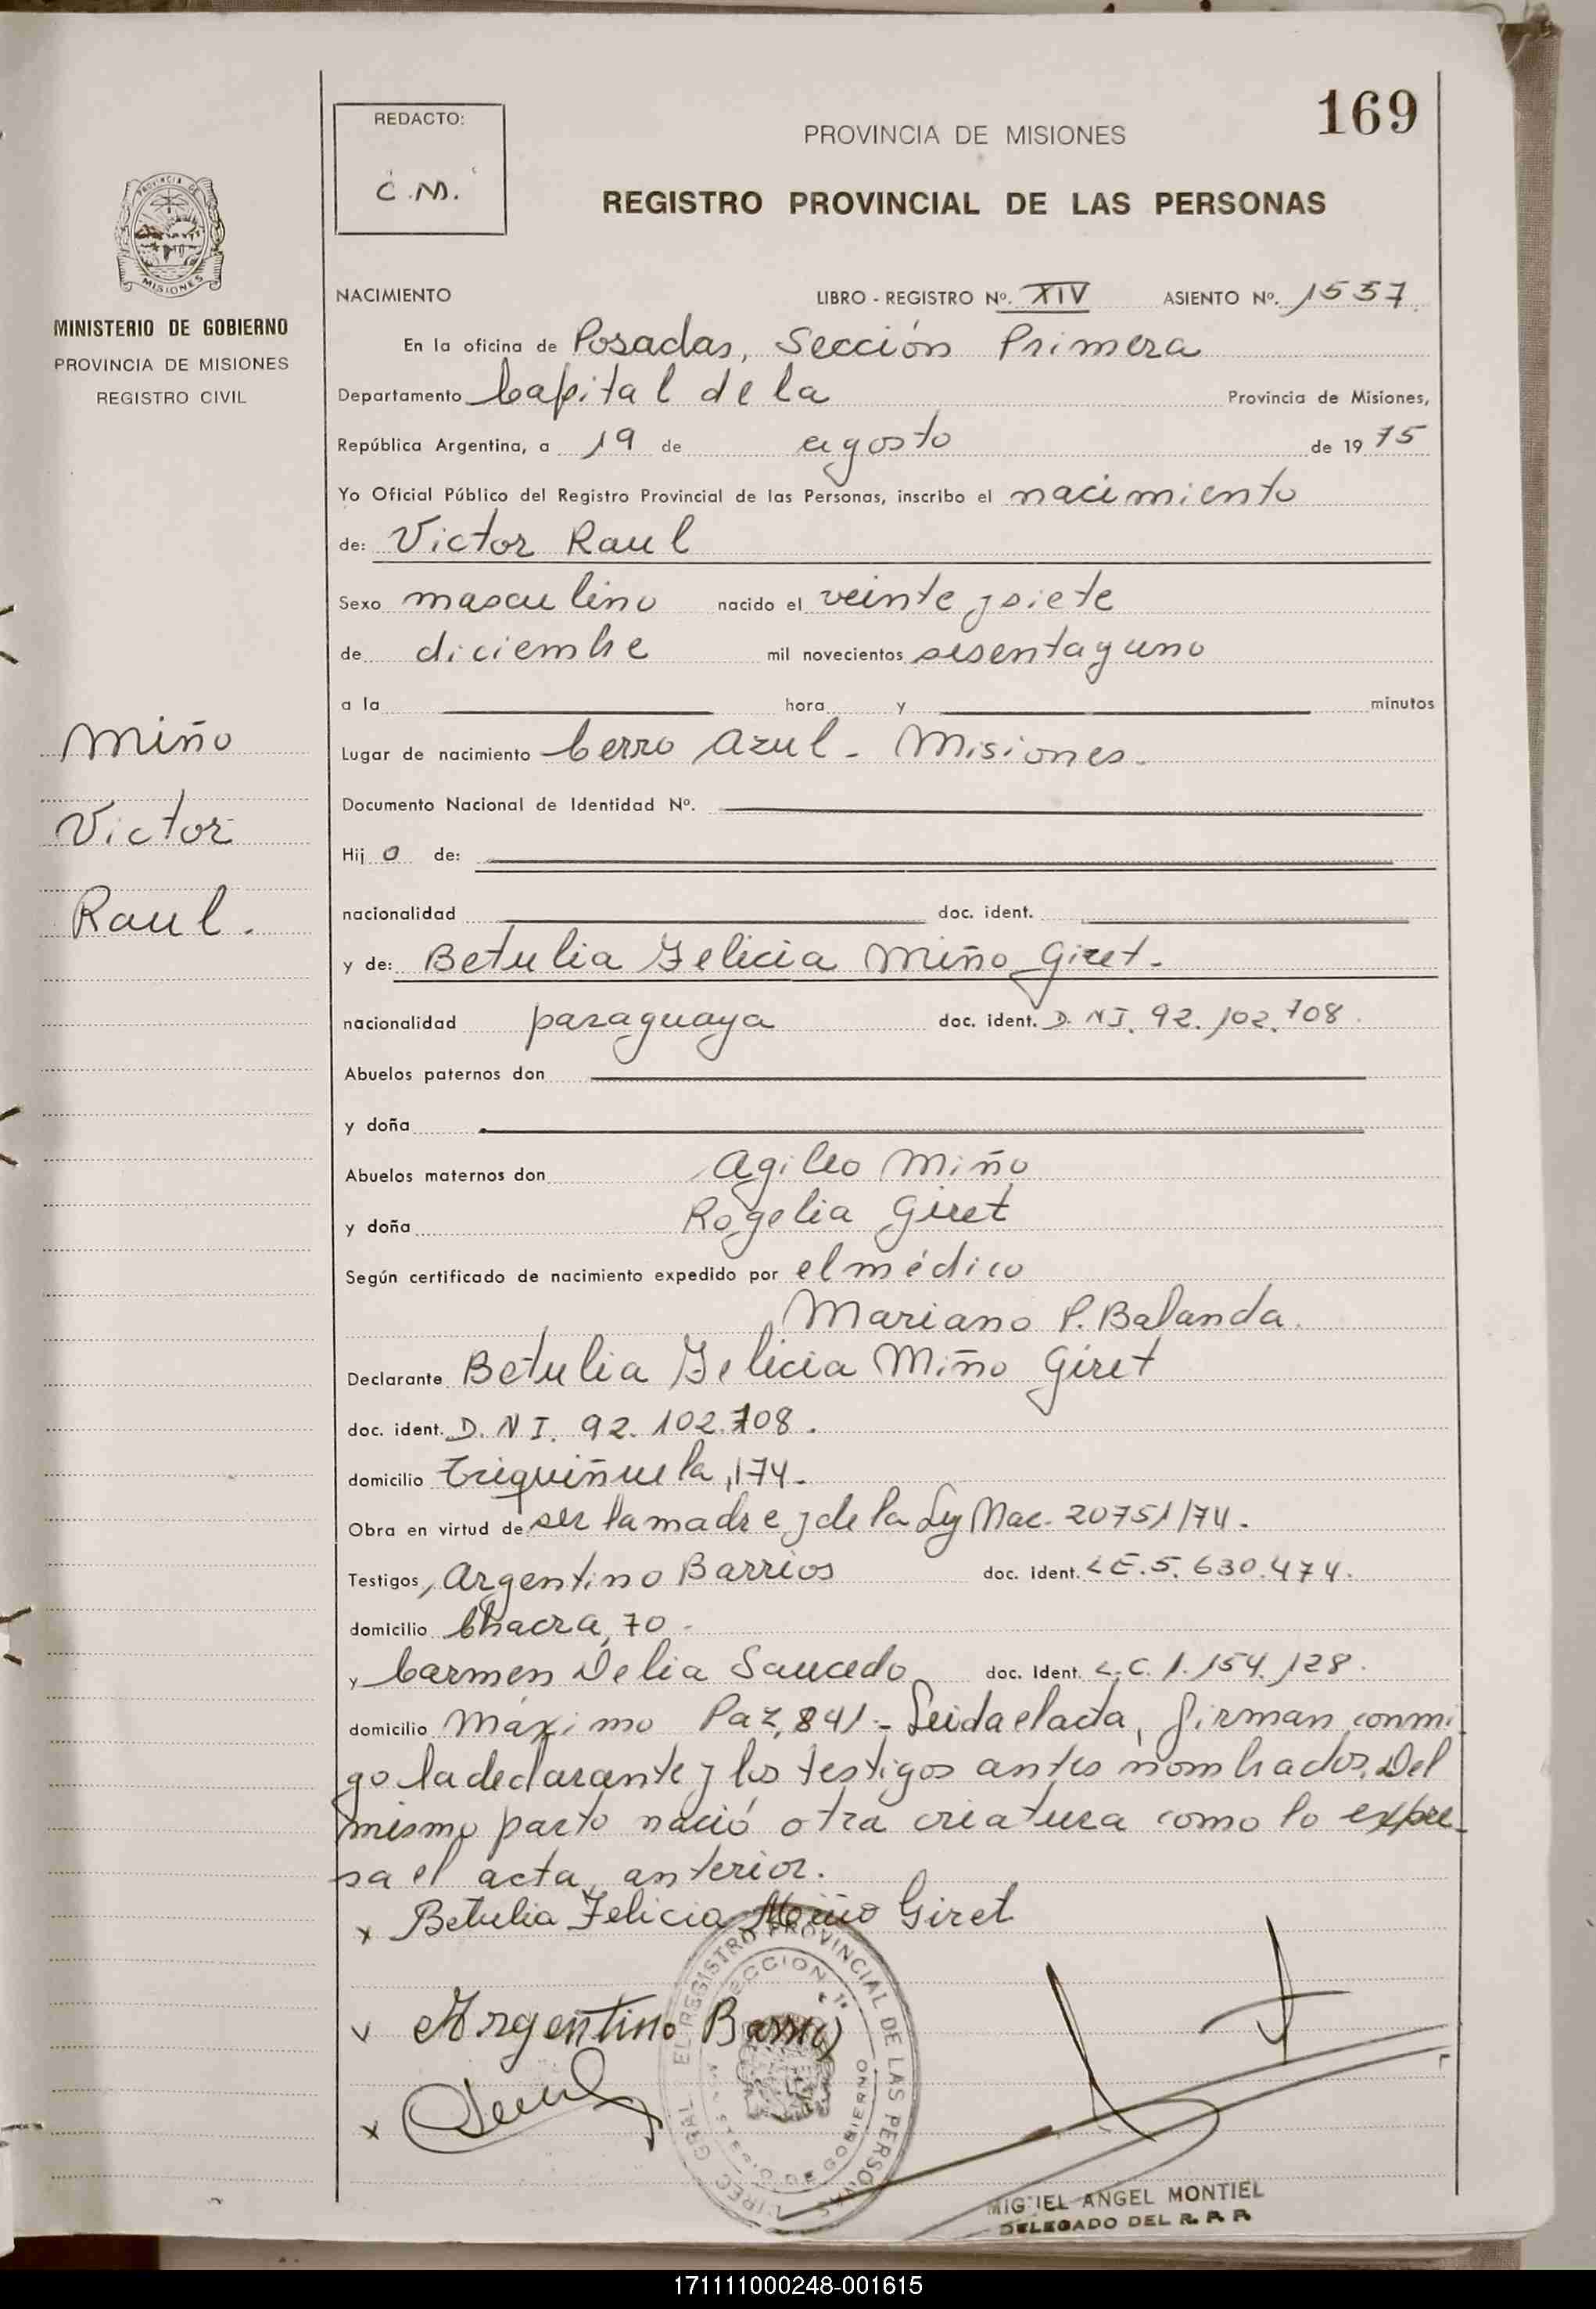 169
REDACTO:
C.M.
PROVINCIA DE MISIONES
REGISTRO PROVINCIAL DE LAS PERSONAS
PROVINCIA DE
MISIONES
MINISTERIO DE GOBIERNO
PROVINCIA DE MISIONES
REGISTRO CIVIL
NACIMIENTO LIBRO - REGISTRO Nº. XIV ASIENTO Nº. 1557
En la oficina de Posadas, Sección Primera
Departamento Capital de la Provincia de Misiones,
República Argentina, a 19 de agosto de 1975
Yo Oficial Público del Registro Provincial de las Personas, inscribo el nacimiento
de: Victor Raul
Sexo masculino nacido el veinte y siete
de diciembre mil novecientos sesenta y uno
a la hora y minutos
Miño
Victor
Raul.
Lugar de nacimiento Cerro Azul - Misiones.
Documento Nacional de Identidad Nº.
Hij o de:
nacionalidad doc. ident.
y de: Betulia Felicia Miño Giret.
nacionalidad paraguaya doc. ident. D.N.I. 92.102.708.
Abuelos paternos don
y doña
Abuelos maternos don Agileo Miño
y doña Rogelia Giret
Según certificado de nacimiento expedido por el médico
Mariano P. Balanda.
Declarante Betulia Felicia Miño Giret
doc. ident. D.N.I. 92.102.708.
domicilio Triquiñuela, 174.
Obra en virtud de ser la madre y de la Ley Nac. 20751/74.
Testigos, Argentino Barrios doc. ident. L.E. 5.630.474.
domicilio Chacra, 70.
y Carmen Delia Saucedo doc. Ident. L.C. 1.154.128.
domicilio Máximo Paz, 841.- Leida el acta, firman conmi
go la declarante y los testigos antes nombrados. Del
mismo parto nació otra criatura como lo expre-
sa el acta anterior.
x Betulia Felicia Miño Giret
Argentino Barrios
x
EL REGISTRO PROVINCIAL DE LAS PERSONAS
SECCION 1ª
GOBIERNO
MIGUEL ANGEL MONTIEL
DELEGADO DEL R. P. P.
171111000248-001615